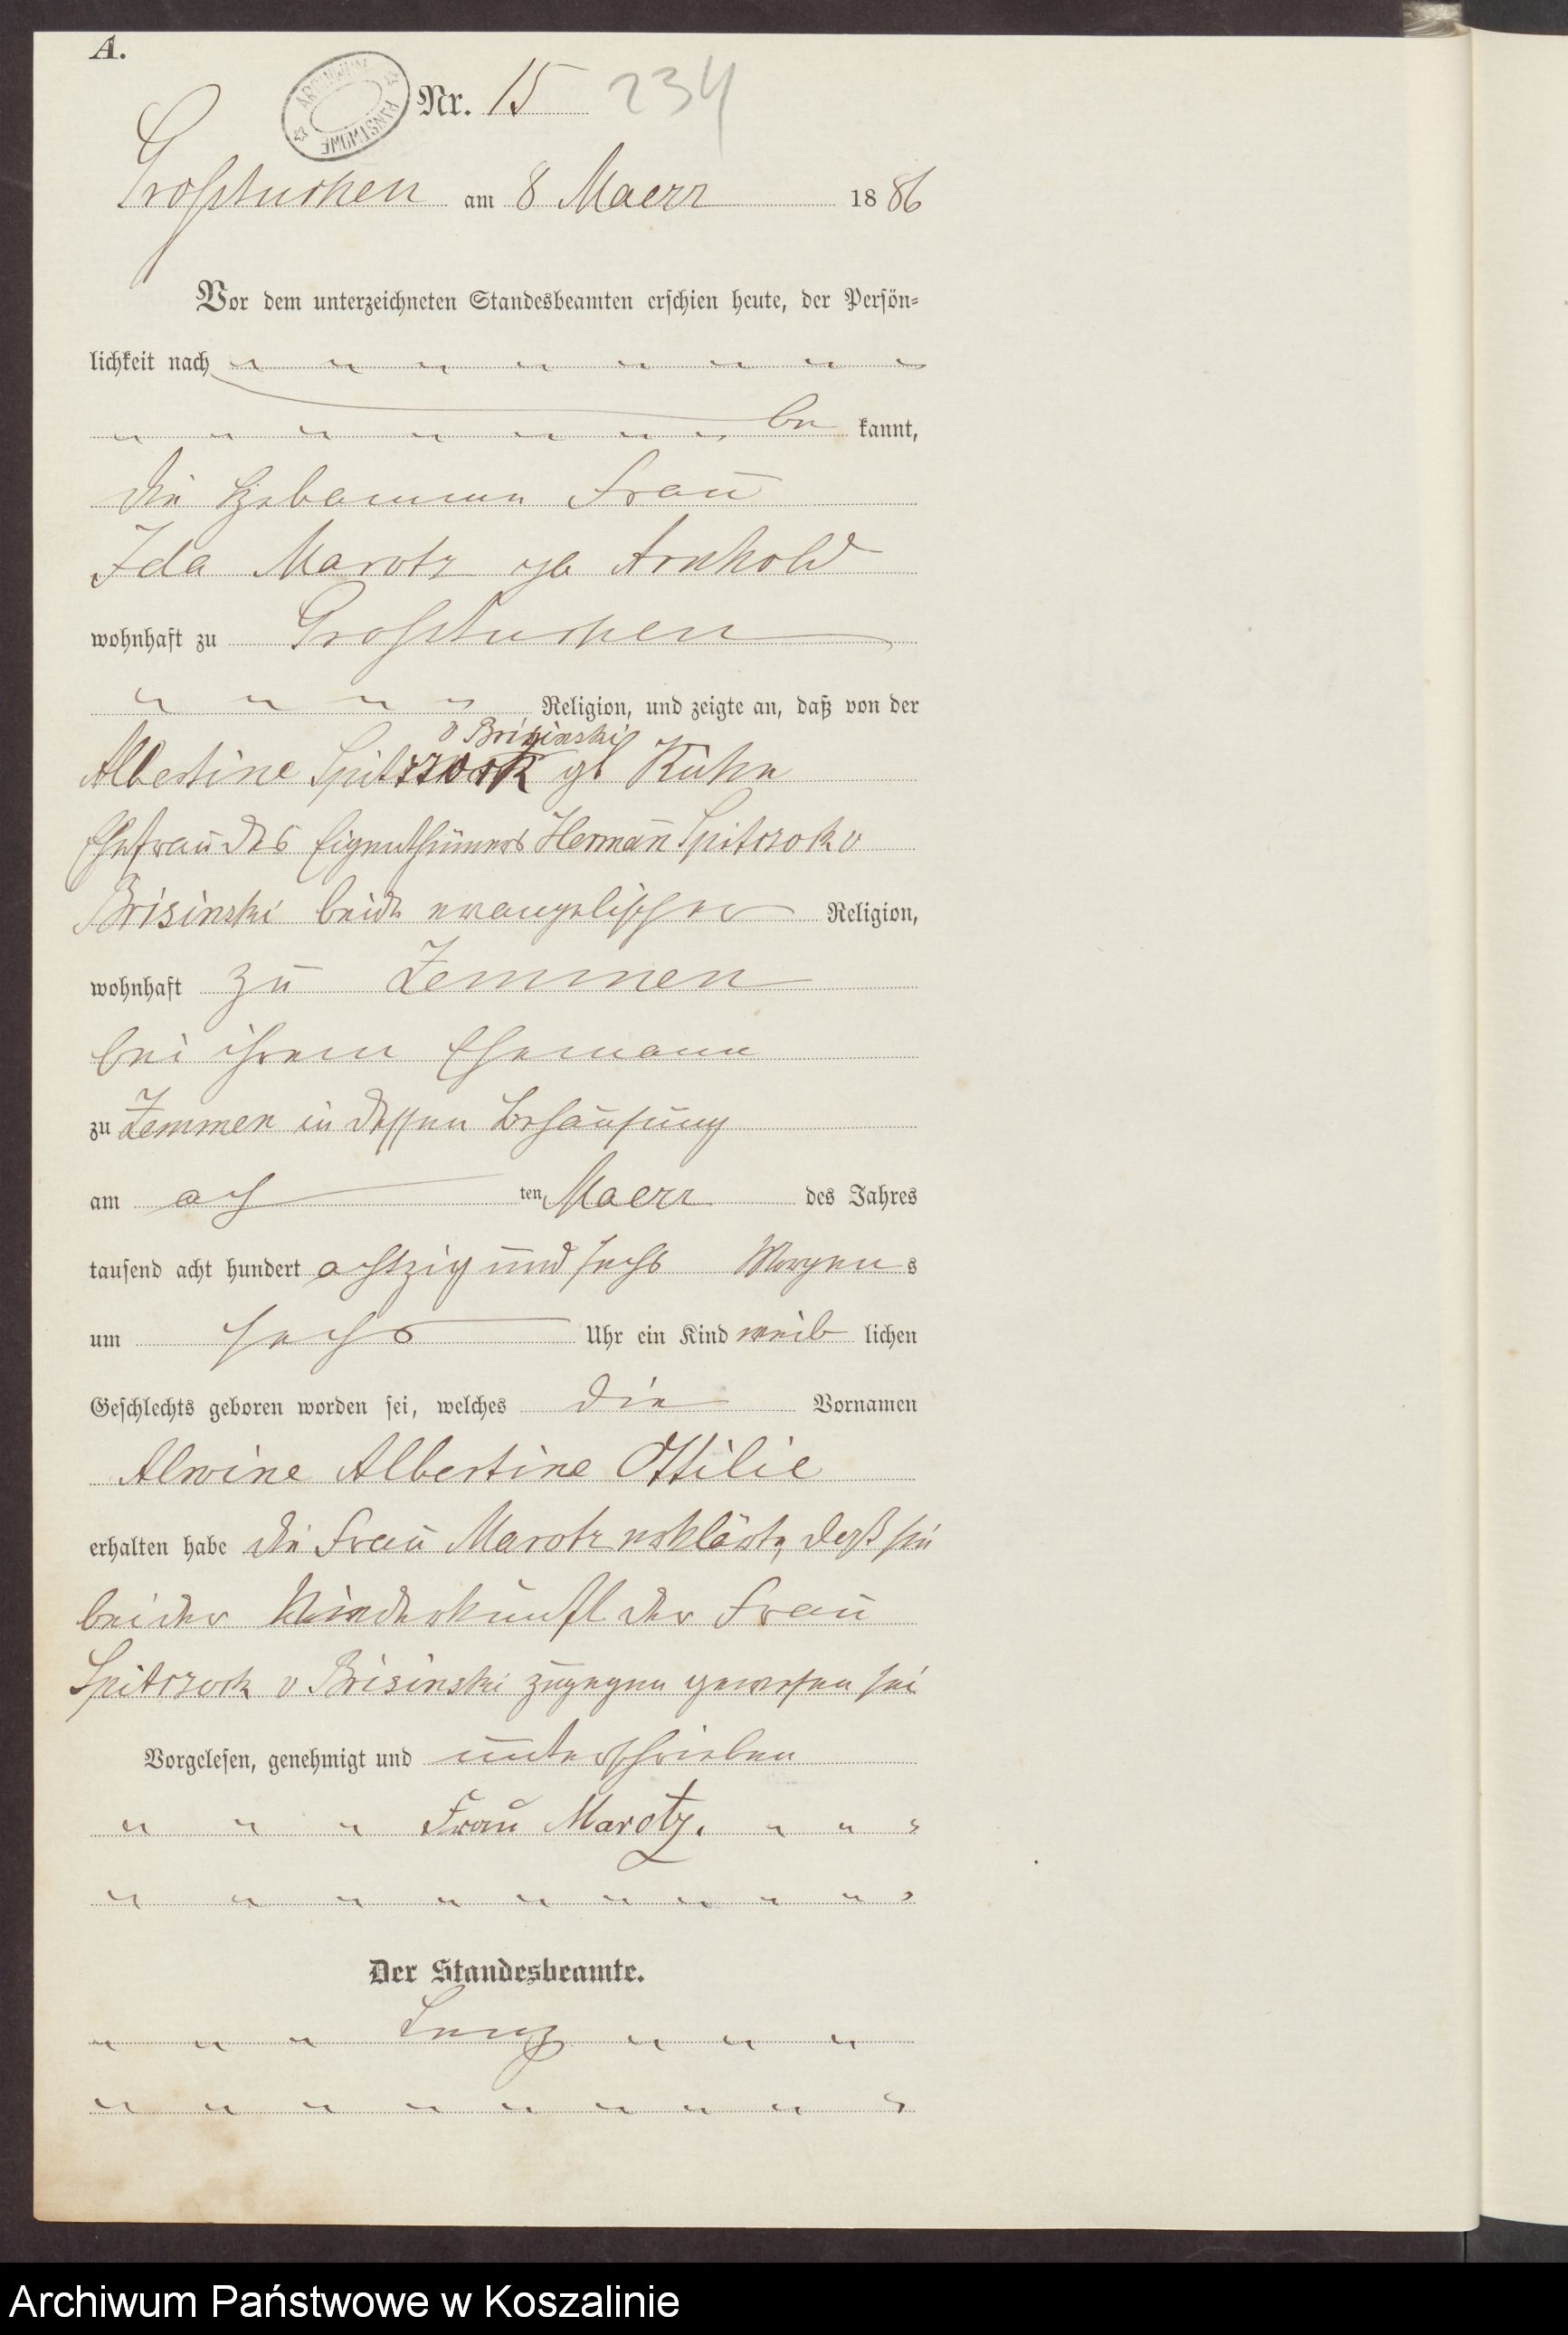 A.
ARCHIWUM PAŃSTWOWE
Nr. 15 234
Großtuchen am 8 Maerz 1886
Vor dem unterzeichneten Standesbeamten erschien heute, der Persön-
lichkeit nach
be kannt,
die Hebamme Frau
Ida Marotz gb Arnhold
wohnhaft zu Großtuchen
Religion, und zeigte an, daß von der
v Brisinski
Albertine Spitzzock gb Kuhn
Ehefrau des Eigenthümers Hermann Spitczok v
Brisinski beide evangelischer Religion,
wohnhaft zu Zemmen
bei ihrem Ehemann
zu Zemmen in dessen Behausung
am ach ten Maerz des Jahres
tausend acht hundert achtzig und sechs Morgens
um sechs Uhr ein Kind weib lichen
Geschlechts geboren worden sei, welches die Vornamen
Alwine Albertine Ottilie
erhalten habe die Frau Marotz erklärte, daß sie
bei der Niederkunft der Frau
Spitczock v Brisinski zugegen gewesen sei
Vorgelesen, genehmigt und unterschrieben
Frau Marotz.
Der Standesbeamte.
Archiwum Państwowe w Koszalinie